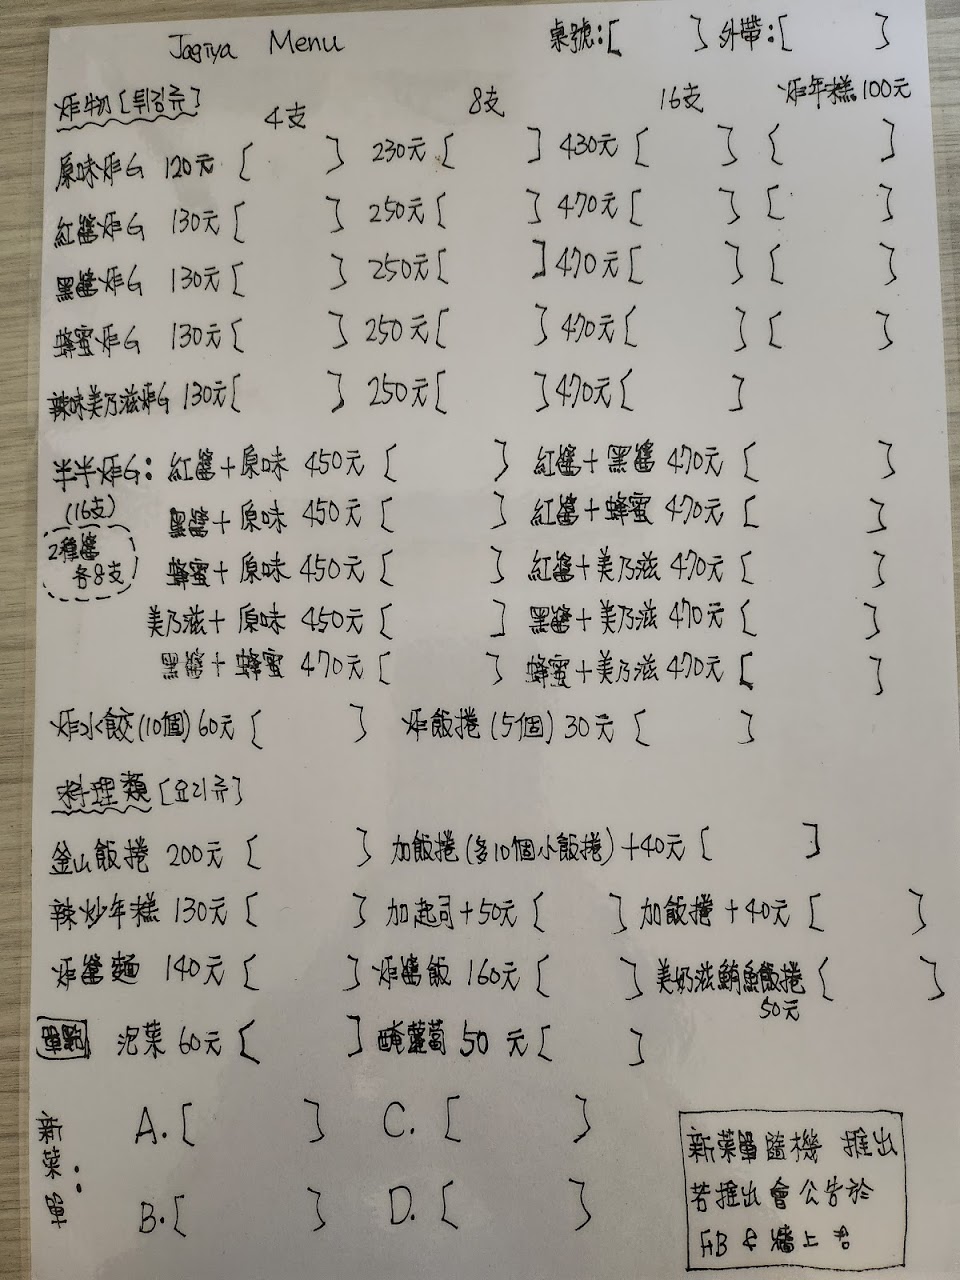 Jagiya Menu 桌號:[ ] 外帶:[ ]
炸物[튀김류] 4支 8支 16支 炸年糕100元
原味炸G 120元 [ ] 230元 [ ] 430元 [ ] [ ]
紅醬炸G 130元 [ ] 250元 [ ] 470元 [ ] [ ]
黑醬炸G 130元 [ ] 250元 [ ] 470元 [ ] [ ]
蜂蜜炸G 130元 [ ] 250元 [ ] 470元 [ ] [ ]
辣味美乃滋炸G 130元 [ ] 250元 [ ] 470元 [ ]
半半炸G: 紅醬+原味 450元 [ ] 紅醬+黑醬 470元 [ ]
(16支) 黑醬+原味 450元 [ ] 紅醬+蜂蜜 470元 [ ]
2種醬
各8支
蜂蜜+原味 450元 [ ] 紅醬+美乃滋 470元 [ ]
美乃滋+原味 450元 [ ] 黑醬+美乃滋 470元 [ ]
黑醬+蜂蜜 470元 [ ] 蜂蜜+美乃滋 470元 [ ]
炸水餃(10個) 60元 [ ] 炸飯捲(5個) 30元 [ ]
料理類[요리류]
釜山飯捲 200元 [ ] 加飯捲(多10個小飯捲)+40元 [ ]
辣炒年糕 130元 [ ] 加起司+50元 [ ] 加飯捲+40元 [ ]
炸醬麵 140元 [ ] 炸醬飯 160元 [ ] 美奶滋鮪魚飯捲 [ ]
50元
單點 泡菜 60元 [ ] 醃蘿蔔 50 元 [ ]
新菜單:
A.[ ] C.[ ]
B.[ ] D.[ ]
新菜單隨機 推出
若推出會公告於
FB & 牆上